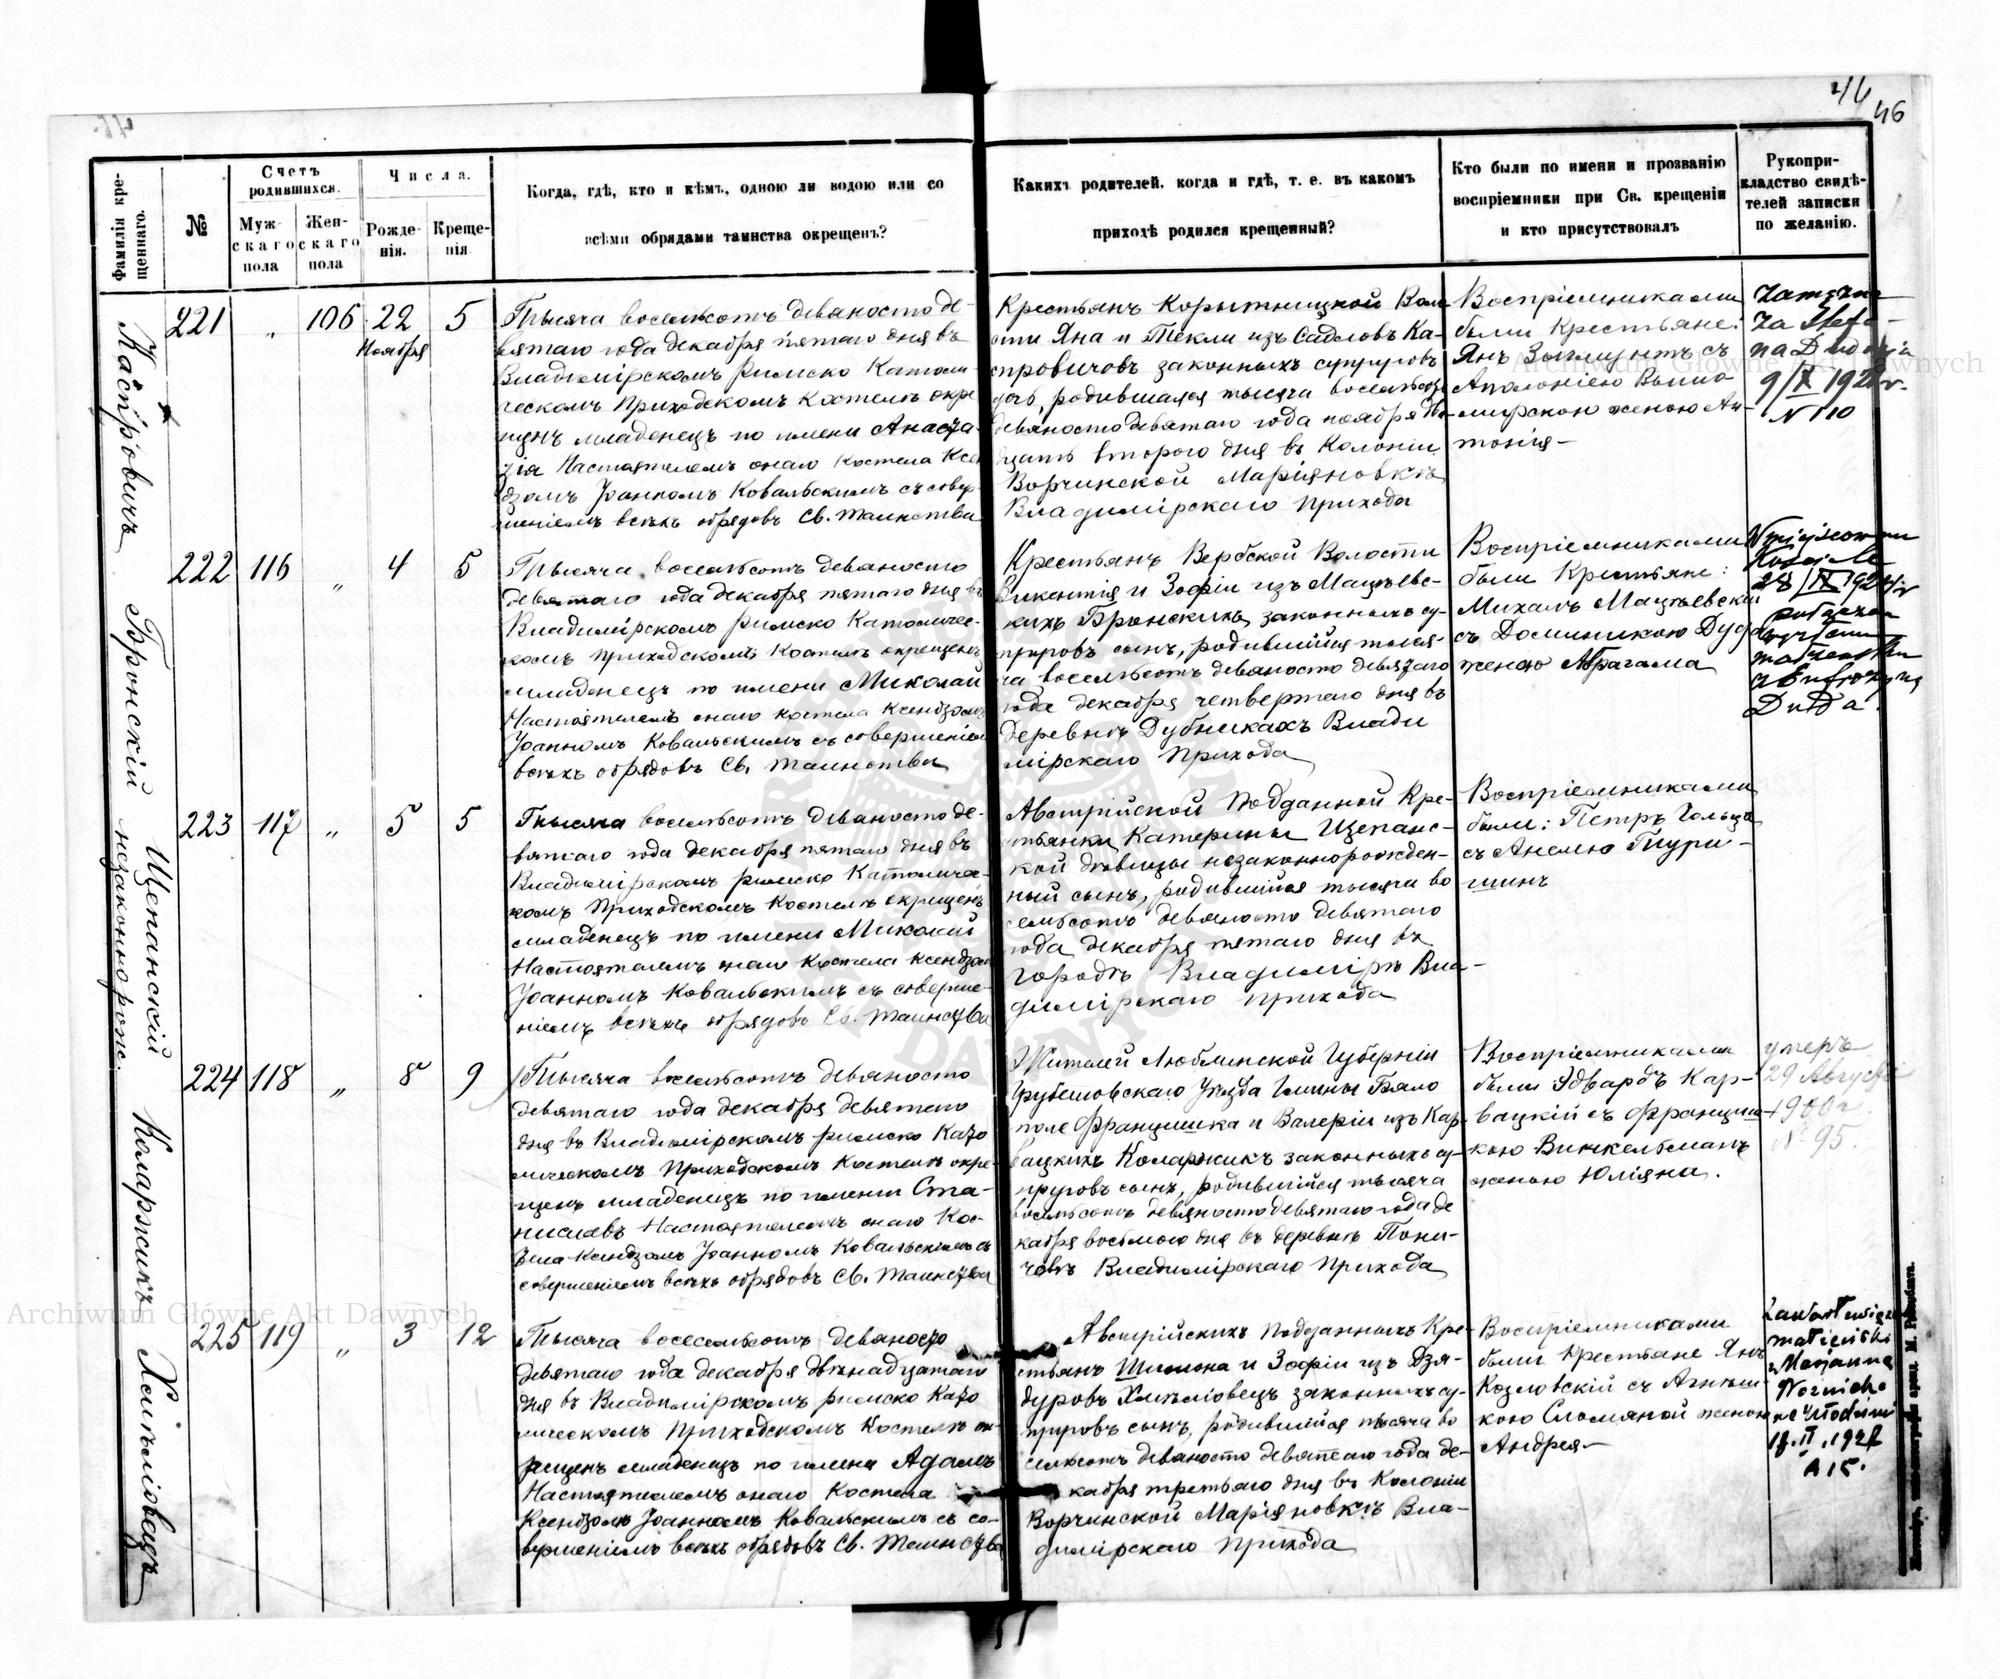 46
46
Фамилія кре-
щеннаго.
№
Счетъ
родившихся.
Муж-
скаго
пола
Жен-
скаго
пола
Числа.
Рожде-
нія.
Креще-
нія
Когда, гдѣ, кто и кѣмъ, одною ли водою или со
всѣми обрядами таинства окрещенъ?
Какихъ родителей, когда и гдѣ, т. е. въ какомъ
приходѣ родился крещенный?
Кто были по имени и прозванію
воспріемники при Св. крещеніи
и кто присутствовалъ
Рукопри-
кладство свидѣ-
телей записки
по желанію.
Каспровичъ
221 " 106 22 5
Ноября
Тысяча восемьсотъ девяносто де-
вятаго года декабря пятаго дня въ
Владимірскомъ римско Католи-
ческомъ Приходскомъ Костелѣ окре-
щенъ младенецъ по имени Анаста-
зія Настоятелемъ онаго Костела Ксен
дзомъ Іоанномъ Ковальскимъ съ совер-
шеніемъ всѣхъ обрядовъ Св. Таинства
Крестьянъ Корытницкой Воло
сти Яна и Текли изъ Садловъ Ка-
спровичовъ законныхъ супруговъ
дочь, родившаяся тысяча восемьсотъ
девяносто девятаго года ноября два
дцать втораго дня въ Колоніи
Ворчинской Маріяновкѣ
Владимірскаго прихода
Воспріемниками
были Крестьяне:
Янъ Зыгмунтъ съ
Аполоніею Вышо
мирскою женою Ан-
тонія
Zamężna
za Stefa-
na Dudzia
9/X 192 r.
N 110
Бронскій
222 116 " 4 5
Тысяча восемьсотъ девяносто
девятаго года декабря пятаго дня въ
Владимірскомъ римско Католичес-
комъ Приходскомъ Костелѣ окрещенъ
младенецъ по имени Миколай
Настоятелемъ онаго костела Ксендзомъ
Іоанномъ Ковальскимъ съ совершеніемъ
всѣхъ обрядовъ Св. Таинства
Крестьянъ Вербской Волости
Викентія и Зофіи изъ Мацѣевс-
кихъ Бронскихъ законныхъ су-
пруговъ сынъ, родившійся тыся-
ча восемьсотъ девяносто девятаго
года декабря четвертаго дня въ
деревнѣ Дубникахъ Влади
мірскаго Прихода
Воспріемниками
были Крестьяне:
Михалъ Мацѣевскій
съ Доминикою Дуда
женою Абрагама
W miejscowym
Kościele
28/IX 192 r
małżeństwa
Duda.
Щепанскій
незаконнорож.
223 117 " 5 5
Тысяча восемьсотъ девяносто де-
вятаго года декабря пятаго дня въ
Владимірскомъ римско Католичес-
комъ Приходскомъ Костелѣ окрещенъ
младенецъ по имени Миколай
Настоятелемъ онаго Костела Ксендзомъ
Іоанномъ Ковальскимъ съ соверше-
ніемъ всѣхъ обрядовъ Св. Таинства
Австрійской Подданной Кре-
стьянки Катерины Щепанс-
кой дѣвицы незаконнорожден-
ный сынъ, родившійся тысяча во
семьсотъ девяносто девятаго
года декабря пятаго дня въ
городѣ Владимірѣ Вла-
димірскаго прихода
Воспріемниками
были: Петръ Гольца
съ Анелею Тури-
шинъ
Коларжикъ
224 118 " 8 9
Тысяча восемьсотъ девяносто
девятаго года декабря девятаго
дня въ Владимірскомъ римско Като
лическомъ Приходскомъ Костелѣ окре-
щенъ младенецъ по имени Ста-
ниславъ Настоятелемъ онаго Кос-
тела Ксендзомъ Іоанномъ Ковальскимъ съ
совершеніемъ всѣхъ обрядовъ Св. Таинства
Жителей Люблинской Губерніи
Грубешовскаго Уѣзда Гмины Бяло
поле Францишка и Валеріи изъ Кар
вацкихъ Коларжикъ законныхъ су-
пруговъ сынъ, родившійся тысяча
восемьсотъ девяносто девятаго года де
кабря восьмого дня въ деревнѣ Пони-
чевѣ Владимірскаго Прихода
Воспріемниками
были Эдвардъ Кар-
вацкій съ Францишъ-
кою Винкельманъ
женою Юліяна.
умеръ
29 Августа
1900 г.
№ 95.
Хмѣліовецъ
225 119 " 3 12
Тысяча восемьсотъ девяносто
девятаго года декабря двѣнадцатаго
дня въ Владимірскомъ римско Като
лическомъ Приходскомъ Костелѣ ок-
рещенъ младенецъ по имени Адамъ
Настоятелемъ онаго Костела
Ксендзомъ Іоанномъ Ковальскимъ съ со-
вершеніемъ всѣхъ обрядовъ Св. Таинства
Австрійскихъ Подданныхъ Кре-
стьянъ Шимона и Зофіи изъ Дзя-
дуровъ Хмѣліовецъ законныхъ су-
пруговъ сынъ, родившійся тысяча во
семьсотъ девяносто девятаго года де-
кабря третьяго дня въ Колоніи
Ворчинской Маріяновкѣ Вла-
димірскаго Прихода
Воспріемниками
были Крестьяне Янъ
Козловскій съ Агнѣш-
кою Сломяной женою
Андрея
Zawarł związek
małżeński
z Marjanną
Woźnicką
we Włodzimi
18.II.192
A 15.
Archiwum Główne Akt Dawnych
Archiwum Główne Akt Dawnych